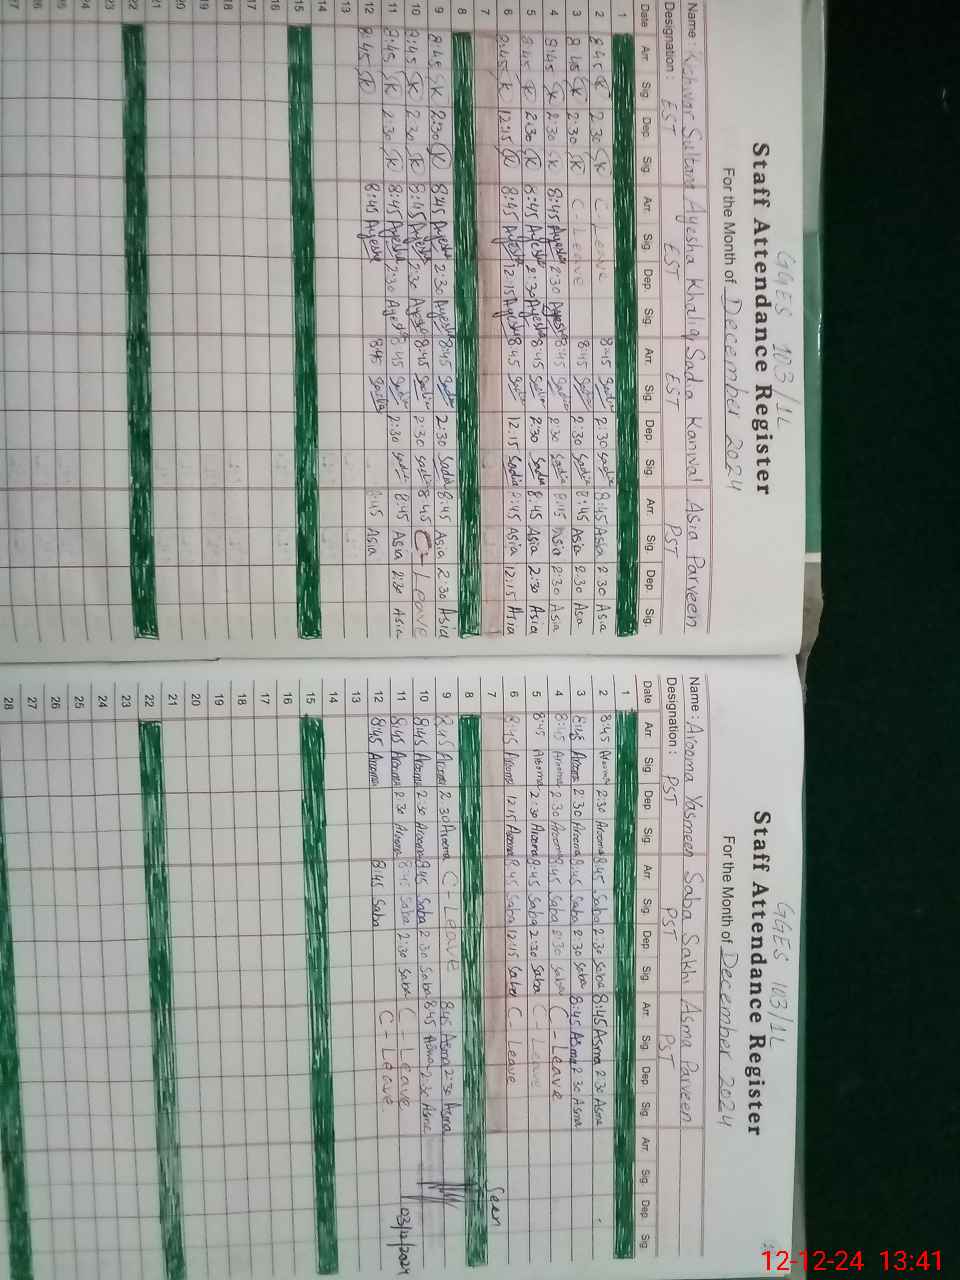 GGES 103/1L
Staff Attendance Register
For the Month of December 2024
Name : Kishwar Sultana Ayesha Khaliq Sadia Kanwal Asia Parveen
Designation : EST EST EST PST
Date Arr. Sig. Dep. Sig. Arr. Sig. Dep. Sig. Arr. Sig. Dep. Sig. Arr. Sig. Dep. Sig.
1
2 8:45 SK 2:30 SK C-Leave 8:45 Sadia 2:30 Sadia 8:45 Asia 2:30 Asia
3 8:45 SK 2:30 SK C-Leave 8:45 Sadia 2:30 Sadia 8:45 Asia 2:30 Asia
4 8:45 SK 2:30 SK 8:45 Ayesha 2:30 Ayesha 8:45 Sadia 2:30 Sadia 8:45 Asia 2:30 Asia
5 8:45 SK 2:30 SK 8:45 Ayesha 2:30 Ayesha 8:45 Sadia 2:30 Sadia 8:45 Asia 2:30 Asia
6 8:45 SK 12:15 SK 8:45 Ayesha 12:15 Ayesha 8:45 Sadia 12:15 Sadia 8:45 Asia 12:15 Asia
7
8
9 8:45 SK 2:30 SK 8:45 Ayesha 2:30 Ayesha 8:45 Sadia 2:30 Sadia 8:45 Asia 2:30 Asia
10 8:45 SK 2:30 SK 8:45 Ayesha 2:30 Ayesha 8:45 Sadia 2:30 Sadia 8:45 C-Leave
11 8:45 SK 2:30 SK 8:45 Ayesha 2:30 Ayesha 8:45 Sadia 2:30 Sadia 8:45 Asia 2:30 Asia
12 8:45 SK 8:45 Ayesha 8:45 Sadia 8:45 Asia
13
14
15
16
17
18
19
20
21
22
23
24
25
26
27
GGES 103/1L
Staff Attendance Register
For the Month of December 2024
Name : Arooma Yasmeen Saba Sakhi Asma Parveen
Designation : PST PST PST
Date Arr. Sig. Dep. Sig. Arr. Sig. Dep. Sig. Arr. Sig. Dep. Sig. Arr. Sig. Dep. Sig.
1
2 8:45 Arooma 2:30 Arooma 8:45 Saba 2:30 Saba 8:45 Asma 2:30 Asma
3 8:45 Arooma 2:30 Arooma 8:45 Saba 2:30 Saba 8:45 Asma 2:30 Asma
4 8:45 Arooma 2:30 Arooma 8:45 Saba 2:30 Saba C-Leave
5 8:45 Arooma 2:30 Arooma 8:45 Saba 2:30 Saba C-Leave
6 8:45 Arooma 12:15 Arooma 8:45 Saba 12:15 Saba C-Leave
7 Seen
8
9 8:45 Arooma 2:30 Arooma C-Leave 8:45 Asma 2:30 Asma
10 8:45 Arooma 2:30 Arooma 8:45 Saba 2:30 Saba 8:45 Asma 2:30 Asma
11 8:45 Arooma 2:30 Arooma 8:45 Saba 2:30 Saba C-Leave 03/12/2024
12 8:45 Arooma 8:45 Saba C-Leave
13
14
15
16
17
18
19
20
21
22
23
24
25
26
27
28
12-12-24 13:41